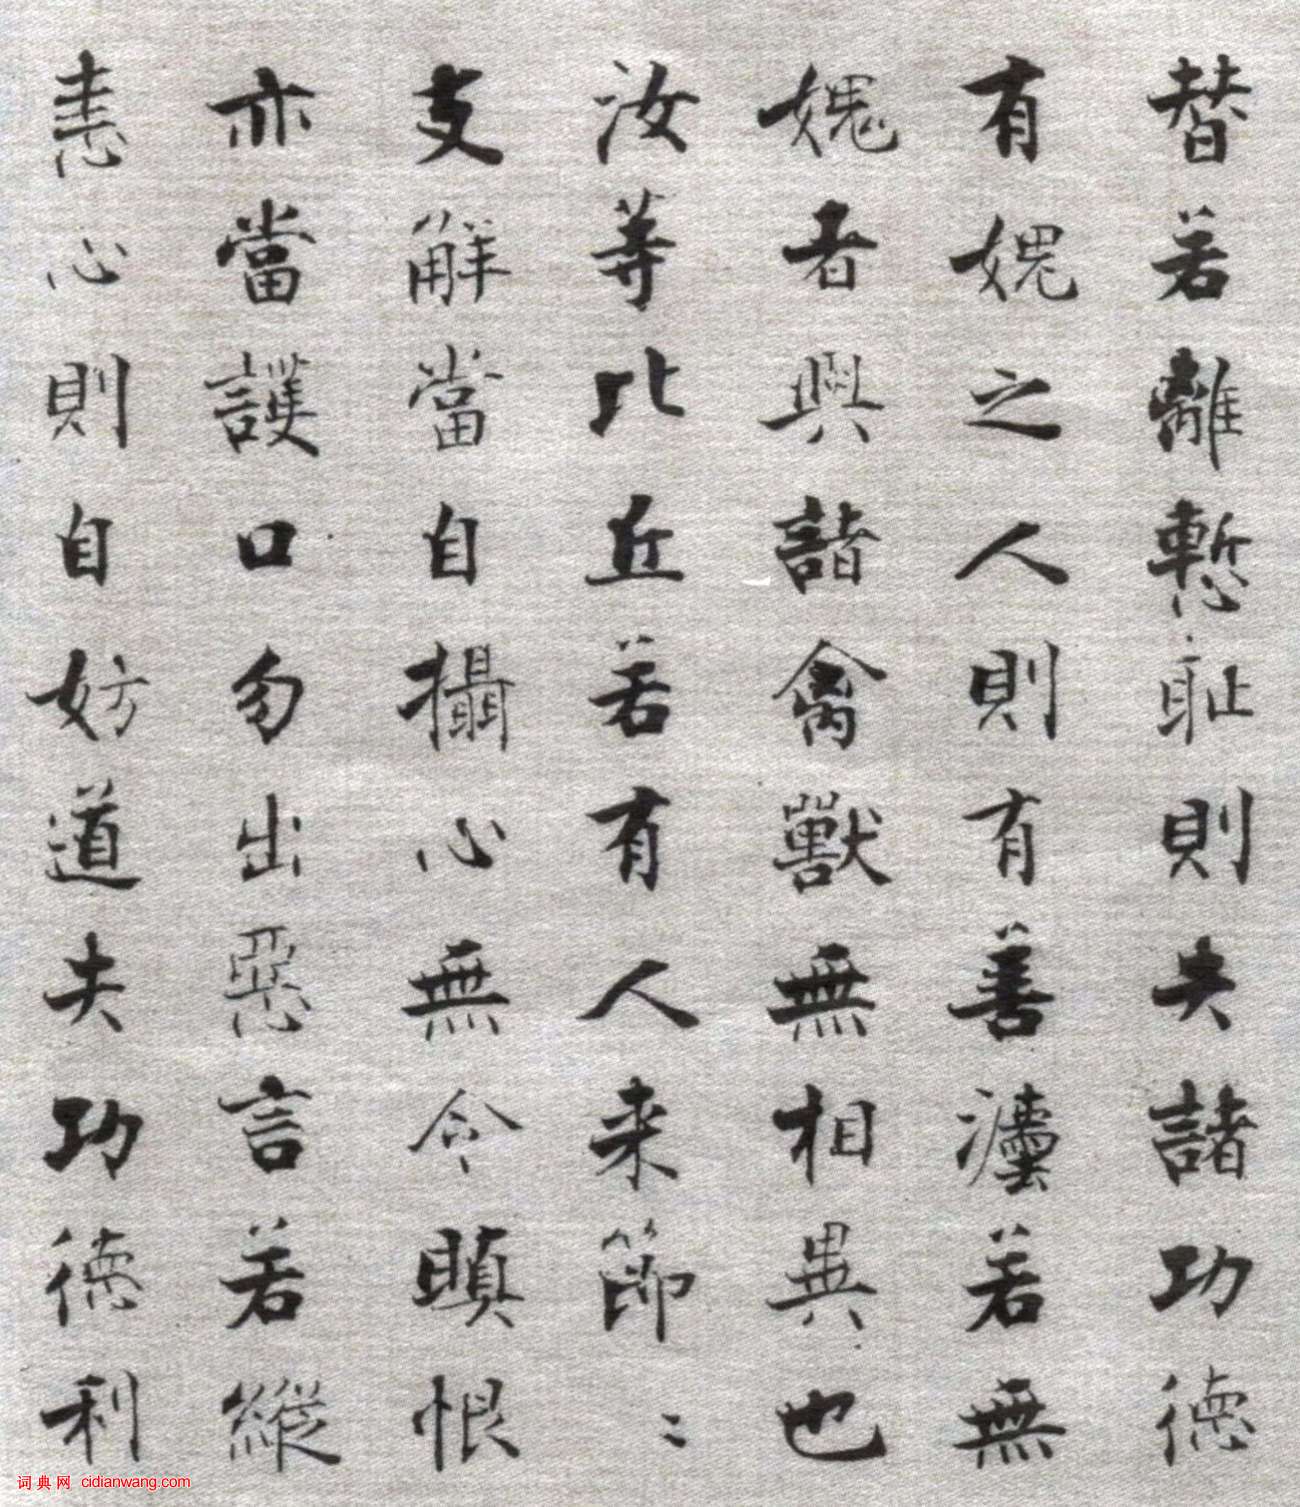 替若離慙耻則失諸功德
有媿之人則有善灋若無
媿者與諸禽獸無相異也
汝等比丘若有人来節〻
支解當自攝心無令瞋恨
亦當護口勿出惡言若縱
恚心則自妨道失功德利
词典网 cidianwang.com